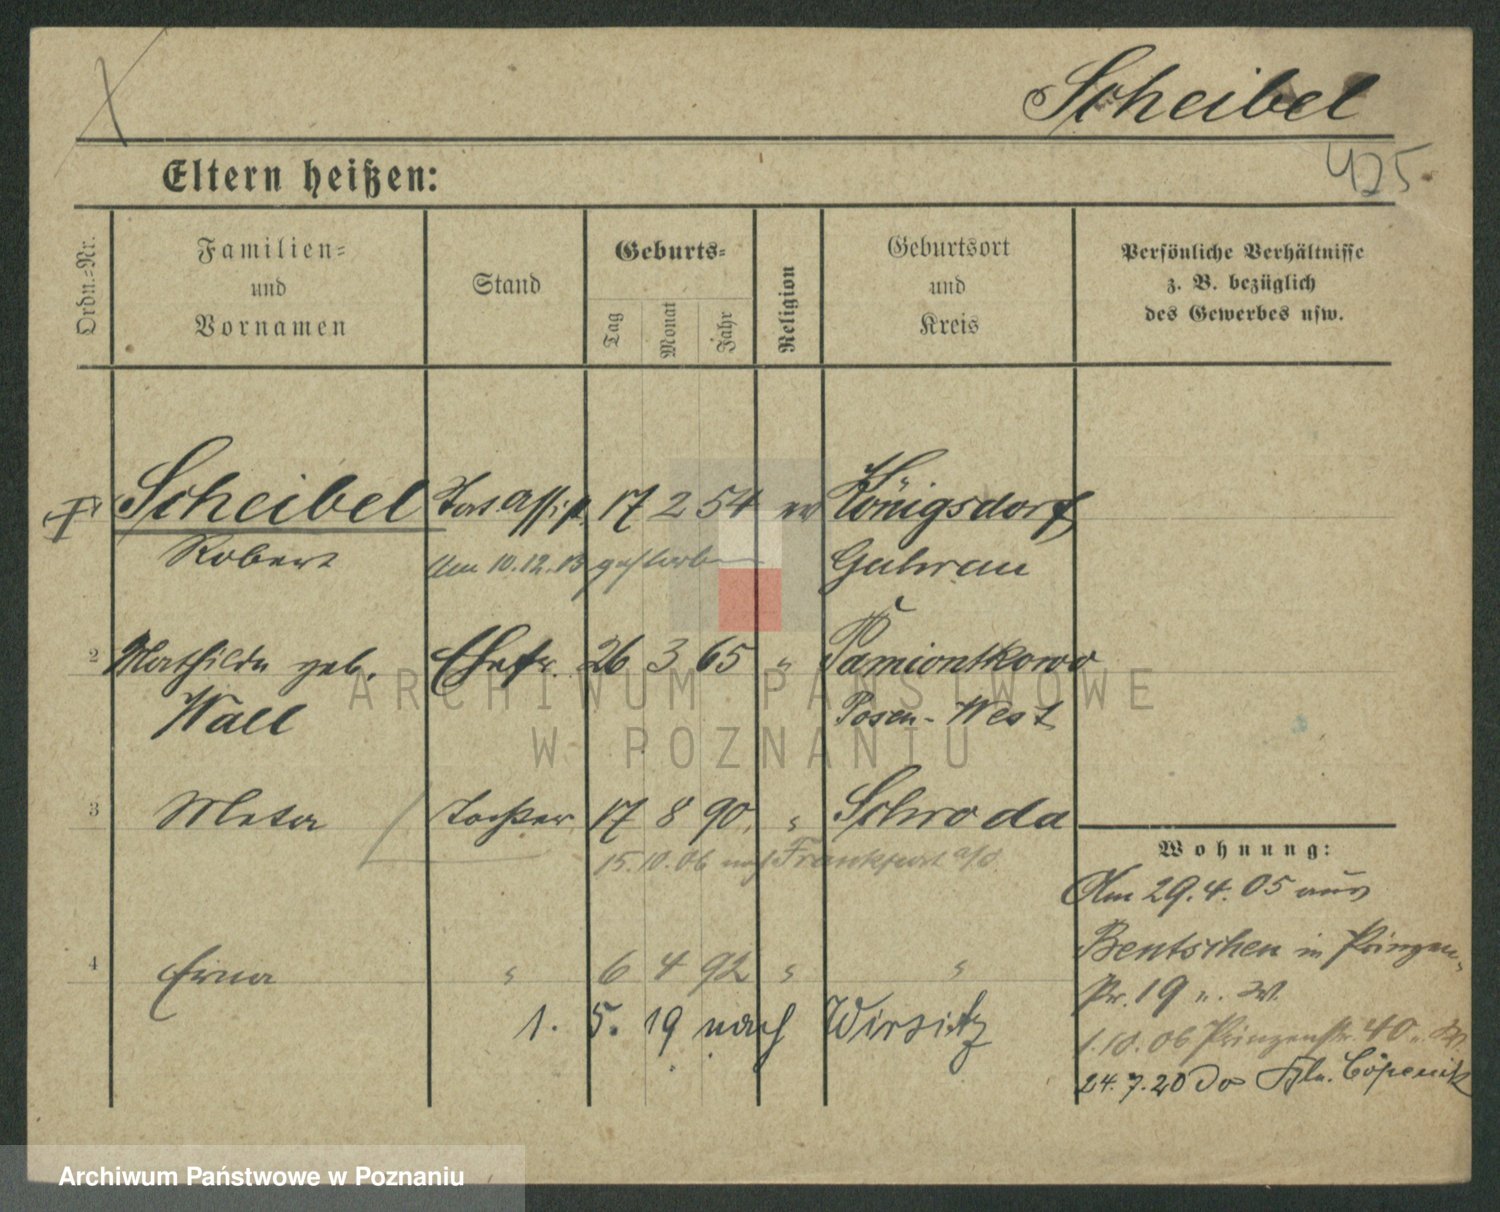 Scheibel
425
Eltern heißen:
Ordn.-Nr.
Familien-
und
Vornamen
Stand
Geburts-
Tag
Monat
Jahr
Religion
Geburtsort
und
Kreis
Persönliche Verhältnisse
z. B. bezüglich
des Gewerbes usw.
Scheibel assist. 17 2 54 ev Königsdorf
Robert Am 10.12.13 gestorben Guhrau
2 Mathilde geb. Ehefr. 26 3 65 " Pamiontkowo
Wall Posen-West
3 Meta Tochter 17 8 90 " Schroda
15.10.06 nach Frankfurt a/O.
4 Erna " 6 4 92 " "
1. 5. 19 nach Wirsitz
Wohnung:
Am 29.4.05 aus
Bentschen in Prinzen-
str. 19 u. W.
1.10.06 Prinzenstr. 40
24.7.20 Cöpenick
ARCHIWUM PAŃSTWOWE
W POZNANIU
Archiwum Państwowe w Poznaniu